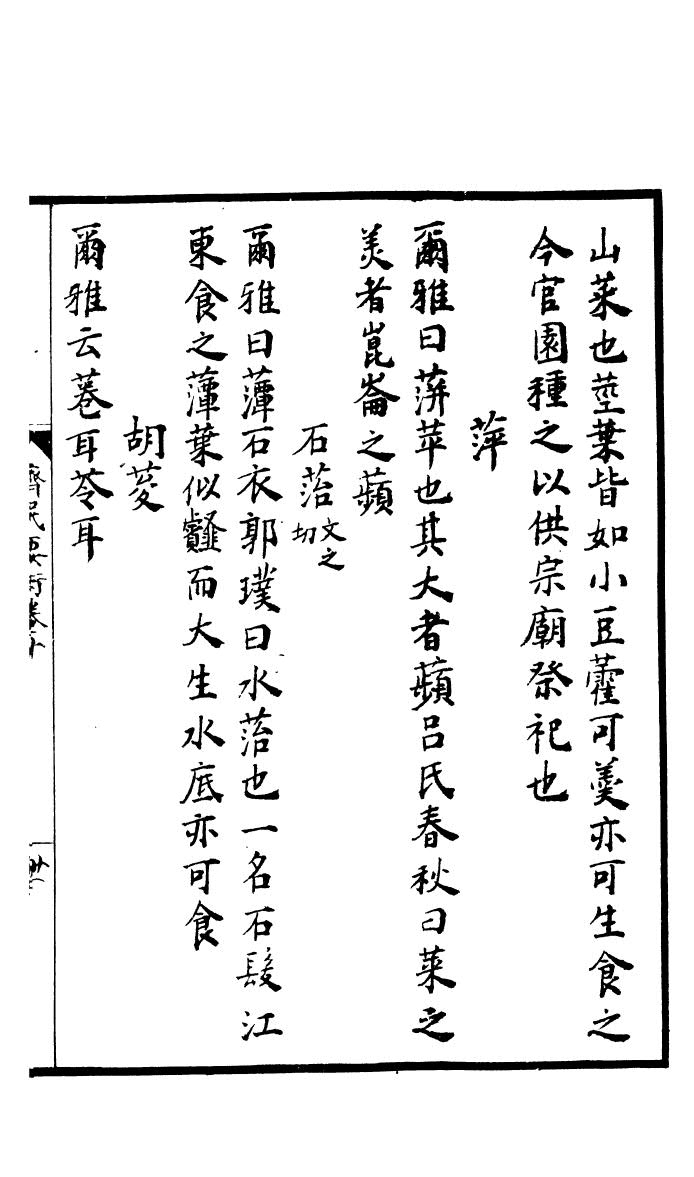 山菜也莖葉皆如小豆藿可羹亦可生食之
今官園種之以供宗廟祭祀也
萍
爾雅曰蓱苹也其大者蘋呂氏春秋曰菜之
美者崑崙之蘋
石菭文之切
爾雅曰藫石衣郭璞曰水菭也一名石髮江
東食之藫葉似䪥而大生水底亦可食
胡荾
爾雅云菤耳苓耳
齊民要術卷十